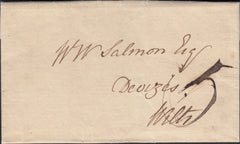 W W Salmon Esq
Devizes
Wilts
5